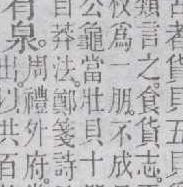 古者貨貝五貝
類言之食貨志
為一朋不成
公龜當壯貝十
自莽法鄭箋詩
有泉
周禮外府
出以共百